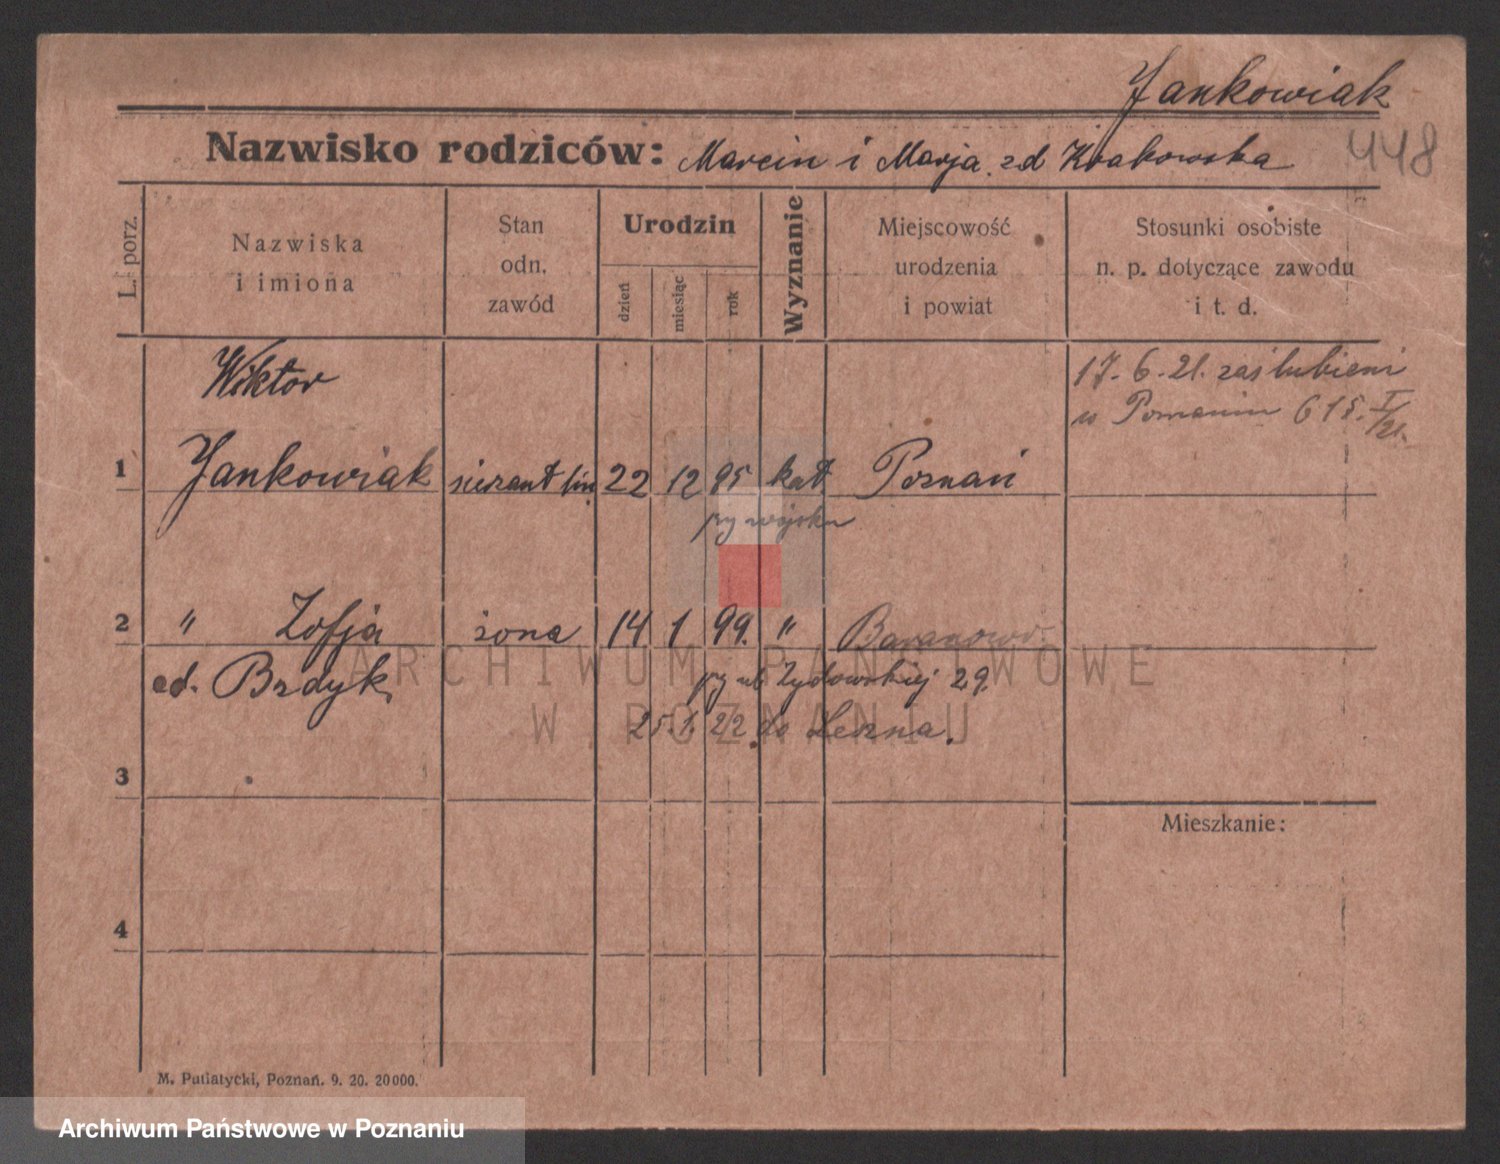 Jankowiak
Nazwisko rodziców: Marcin i Marja zd Krakowska
448
L. porz.
Nazwiska
i imiona
Stan
odn.
zawód
Urodzin
dzień
miesiąc
rok
Wyznanie
Miejscowość
urodzenia
i powiat
Stosunki osobiste
n. p. dotyczące zawodu
i t. d.
Wiktor
17.6.21. zaślubieni
w Poznaniu 615. I/21.
1 Jankowiak 22 12 95 kat Poznań
py wojsku
2 " Zofja żona 14 1 99. "
zd. Brdyk
py ul Żydowskiej 29.
25.1.22. do
3
Mieszkanie:
4
M. Putiatycki, Poznań. 9. 20. 20000.
ARCHIWUM PAŃSTWOWE
W POZNANIU
Archiwum Państwowe w Poznaniu